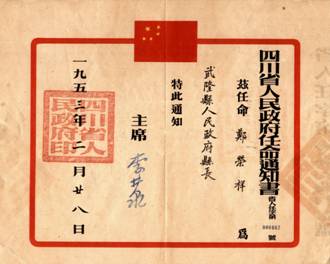 四川省人民政府任命通知書
號
茲任命 鄭榮祥 爲
武隆縣人民政府縣長
特此通知
主席
李井泉
一九五三年二月廿八日
四川省人
民政府印